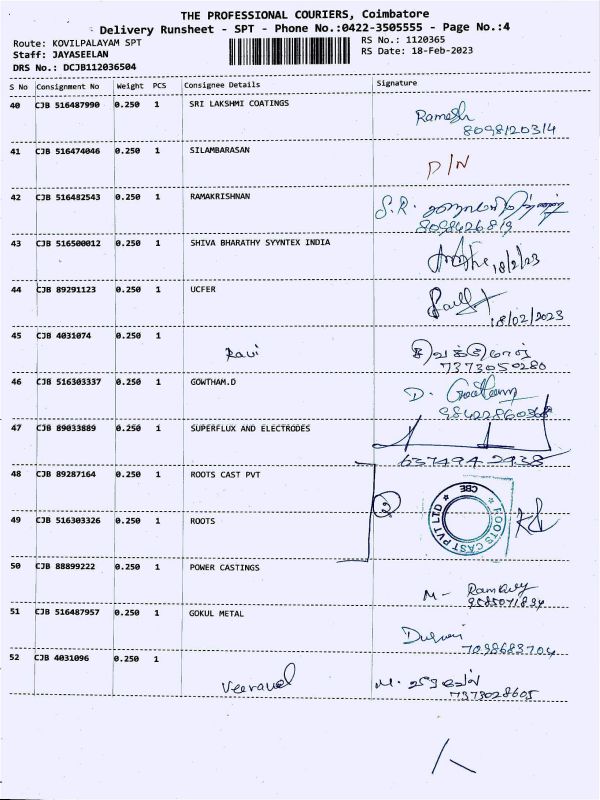 THE PROFESSIONAL COURIERS, Coimbatore
Delivery Runsheet - SPT - Phone No.:0422-3505555 - Page No.:4
Route: KOVILPALAYAM SPT
RS No.: 1120365
Staff: JAYASEELAN
RS Date: 18-Feb-2023
DRS No.: DCJB112036504
S No Consignment No Weight PCS Consignee Details Signature
40 CJB 516487990 0.250 1 SRI LAKSHMI COATINGS Ramesh
8098120314
41 CJB 516474046 0.250 1 SILAMBARASAN D/N
42 CJB 516482543 0.250 1 RAMAKRISHNAN S.R.
8098426819
43 CJB 516500012 0.250 1 SHIVA BHARATHY SYYNTEX INDIA 18/2/23
44 CJB 89291123 0.250 1 UCFER
18/02/2023
45 CJB 4031074 0.250 1 Ravi
7373050280
46 CJB 516303337 0.250 1 GOWTHAM.D D. Gowtham
9842286036
47 CJB 89033889 0.250 1 SUPERFLUX AND ELECTRODES
637494 2938
48 CJB 89287164 0.250 1 ROOTS CAST PVT
ROOTS CAST PVT LTD CBE
49 CJB 516303326 0.250 1 ROOTS
50 CJB 88899222 0.250 1 POWER CASTINGS M-
51 CJB 516487957 0.250 1 GOKUL METAL
7098683704
52 CJB 4031096 0.250 1 Veeravel M.
7373028605